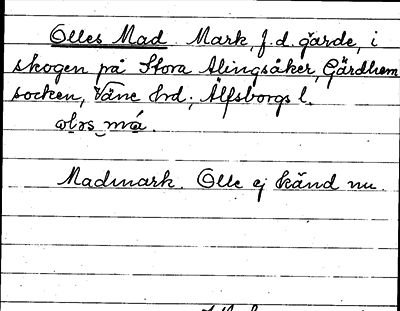 Olles Mad. Mark, f.d. gärde, i
skogen på Stora Alingsåker, Gärdhem
socken, Väne hd; Älfsborgs l.
Madmark. Olle ej känd nu.